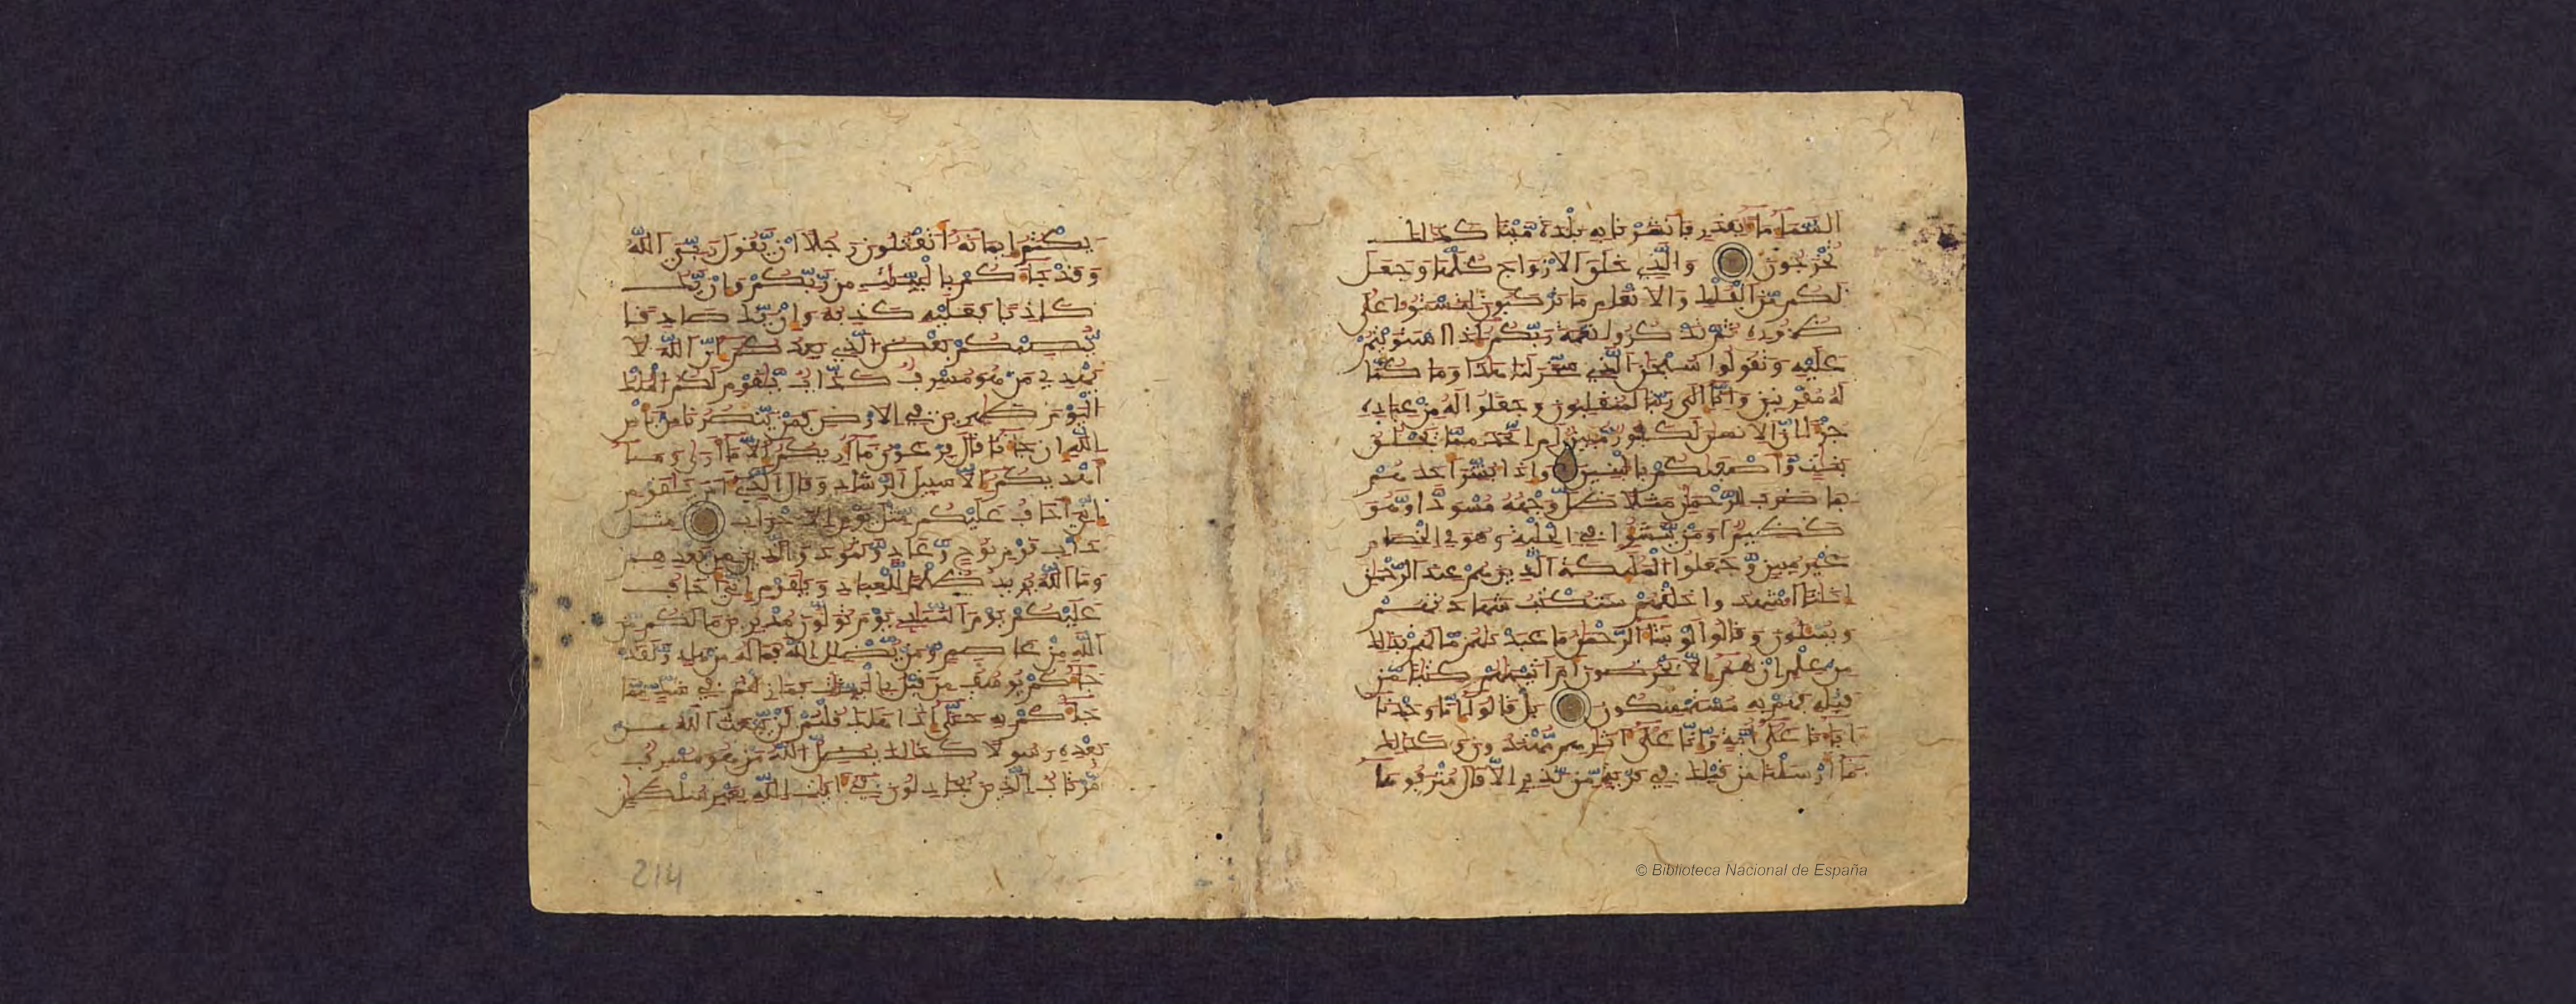 السماء ماء بقدر فانشرنا به بلدة ميتا كذلك
تخرجون والذي خلق الازواج كلها وجعل
لكم من الفلك والانعم ما تركبون لتستووا على
ظهوره ثم تذكروا نعمة ربكم اذا استويتم
عليه وتقولوا سبحن الذي سخر لنا هذا وما كنا
له مقرنين وانا الى ربنا لمنقلبون وجعلوا له من عباده
جزءا ان الانسن لكفور مبين ام اتخذ مما يخلق
بنت واصفيكم بالبنين واذا بشر احدهم
بما ضرب للرحمن مثلا ظل وجهه مسودا وهو
كظيم اومن ينشؤا في الحلية وهو في الخصام
غير مبين وجعلوا الملئكة الذين هم عند الرحمن
انثا اشهدوا خلقهم ستكتب شهادتهم
ويسئلون وقالوا لو شاء الرحمن ما عبدنهم ما لهم بذلك
من علم ان هم الا يخرصون ام اتينهم كتبا من
قبله فهم به مستمسكون بل قالوا انا وجدنا
اباءنا على امة وانا على اثرهم مهتدون وكذلك
ما ارسلنا من قبلك في قرية من نذير الا قال مترفوها
يكتم ايمانه اتقتلون رجلا ان يقول ربي الله
وقد جاءكم بالبينت من ربكم وان يك
كاذبا فعليه كذبه وان يك صادقا
يصبكم بعض الذي يعدكم ان الله لا
يهدي من هو مسرف كذاب يقوم لكم الملك
اليوم ظهرين في الارض فمن ينصرنا من باس
الله ان جاءنا قال فرعون ما اريكم الا ما ارى وما
اهديكم الا سبيل الرشاد وقال الذي امن يقوم
اني اخاف عليكم مثل يوم الاحزاب مثل
داب قوم نوح وعاد وثمود والذين من بعدهم
وما الله يريد ظلما للعباد ويقوم اني اخاف
عليكم يوم التناد يوم تولون مدبرين ما لكم من
الله من عاصم ومن يضلل الله فما له من هاد ولقد
جاءكم يوسف من قبل بالبينت فما زلتم في شك مما
جاءكم به حتى اذا هلك قلتم لن يبعث الله من
بعده رسولا كذلك يضل الله من هو مسرف
مرتاب الذين يجادلون في ايت الله بغير سلطن
214
© Biblioteca Nacional de España